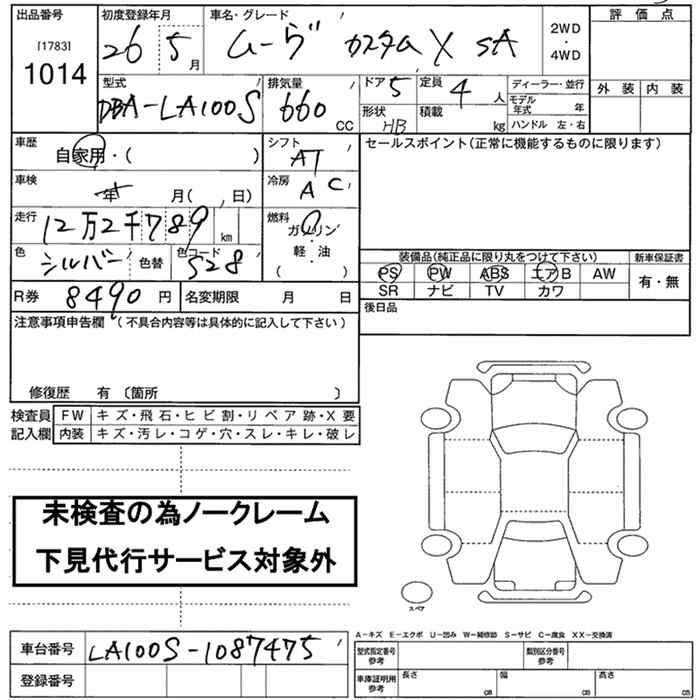 出品番号 初度登録年月 車名・グレード 評価点
[1783]
1014
26 5月
ムーヴ カスタム X SA
2WD
・
4WD
外装 内装
型式 排気量 ドア 定員 ディーラー・並行
DBA-LA100S 660CC 5 4人
モデル年式 年
形状 HB 積載 kg ハンドル 左・右
車歴 自家用・( )
シフト AT
セールスポイント(正常に機能するものに限ります)
車検 年 月( 、日)
冷房 AC
走行 12万2千789km
燃料 ガソリン・軽油( )
色 シルバー 色替 色コード S28
装備品(純正品に限り丸をつけて下さい) 新車保証書
PS PW ABS エアB AW 有・無
SR ナビ TV カワ
R券 8490円 名変期限 月 日
後日品
注意事項申告欄(不具合内容等は具体的に記入して下さい)
修復歴 有〔箇所 〕
検査員 FW キズ・飛石・ヒビ割・リペア跡・X要
記入欄 内装 キズ・汚レ・コゲ・穴・スレ・キレ・破レ
未検査の為ノークレーム
下見代行サービス対象外
スペア
A-キズ E-エクボ U-凹み W-補修跡 S-サビ C-腐食 XX-交換済
車台番号 LA100S-1087475
型式指定番号参考 類別区分番号参考
登録番号
車庫証明用参考 長さ cm 幅 cm 高さ cm